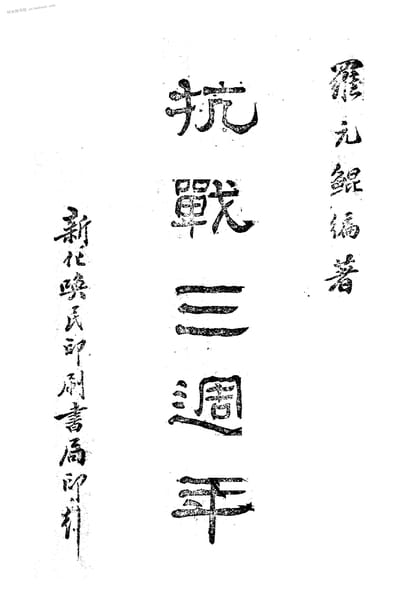 羅元鲲編著
抗戰三週年
新化喚民印刷書局印刷